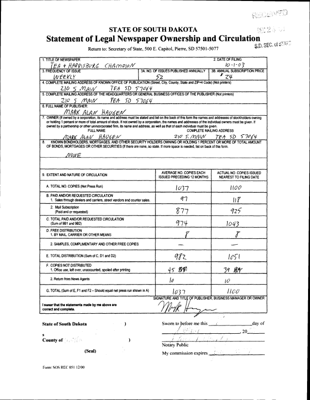 RECEIVED
S.D. SEC. OF STATE
STATE OF SOUTH DAKOTA
Statement of Legal Newspaper Ownership and Circulation
Return to: Secretary of State, 500 E. Capitol, Pierre, SD 57501-5077
1. TITLE OF NEWSPAPER
2. DATE OF FILING
TEA & HARRISBURG CHAMPION
10-1-03
3. FREQUENCY OF ISSUE
3A. NO. OF ISSUES PUBLISHED ANNUALLY
3B. ANNUAL SUBSCRIPTION PRICE
WEEKLY
52
$ 24
4. COMPLETE MAILING ADDRESS OF KNOWN OFFICE OF PUBLICATION (Street, City, County, State and ZIP+4 Code) (Not printers)
210 S. MAIN TEA SD 57064
5. COMPLETE MAILING ADDRESS OF THE HEADQUARTERS OR GENERAL BUSINESS OFFICES OF THE PUBLISHER (Not printers)
210 S. MAIN TEA SD 57064
6. FULL NAME OF PUBLISHER:
MARK ALAN HAUGEN
7. OWNER (If owned by a corporation, its name and address must be stated and list on the back of this form the names and addresses of stockholders owning
or holding 1 percent or more of total amount of stock. If not owned by a corporation, the names and addresses of the individual owners must be given. If
owned by a partnership or other unincorporated firm, its name and address, as well as that of each individual must be given.
FULL NAME
COMPLETE MAILING ADDRESS
MARK ALAN HAUGEN
210 S. MAIN TEA SD 57064
8. KNOWN BONDHOLDERS, MORTGAGES, AND OTHER SECURITY HOLDERS OWNING OR HOLDING 1 PERCENT OR MORE OF TOTAL AMOUNT
OF BONDS, MORTGAGES OR OTHER SECURITIES (If there are none, so state. If more space is needed, list on back of this form.
NONE
9. EXTENT AND NATURE OF CIRCULATION
AVERAGE NO. COPIES EACH ISSUES PRECEDING 12 MONTHS
ACTUAL NO. COPIES ISSUED NEAREST TO FILING DATE
A. TOTAL NO. COPIES (Net Press Run)
1037
1100
B. PAID AND/OR REQUESTED CIRCULATION
1. Sales through dealers and carriers, street vendors and counter sales
97
118
2. Mail Subscription
(Paid and or requested)
877
925
C. TOTAL PAID AND/OR REQUESTED CIRCULATION
(Sum of 9B1 and 9B2)
974
1043
D. FREE DISTRIBUTION
1. BY MAIL, CARRIER OR OTHER MEANS
8
8
2. SAMPLES, COMPLIMENTARY AND OTHER FREE COPIES
E. TOTAL DISTRIBUTION (Sum of C, D1 and D2)
982
1051
F. COPIES NOT DISTRIBUTED
1. Office use, left over, unaccounted, spoiled after printing
45
39
2. Return from News Agents
10
10
G. TOTAL (Sum of E, F1 and F2 - Should equal net press run shown in A)
1037
1100
I swear that the statements made by me above are
correct and complete.
SIGNATURE AND TITLE OF PUBLISHER, BUSINESS MANAGER OR OWNER
State of South Dakota )
County of )
(Seal)
Sworn to before me this day of
20
Notary Public
My commission expires
Form: SOS REC 051 12/00